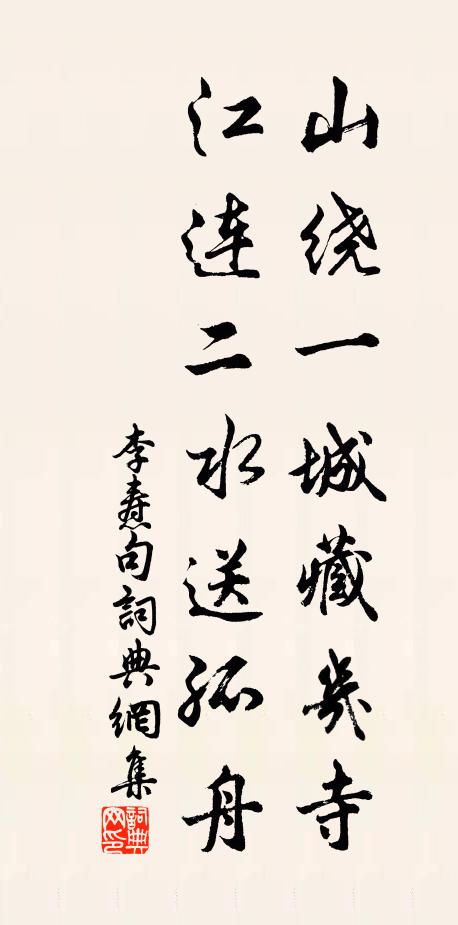 山绕一城藏幾寺
江連二水送孤舟
李焘句詞典網集
詞典网印